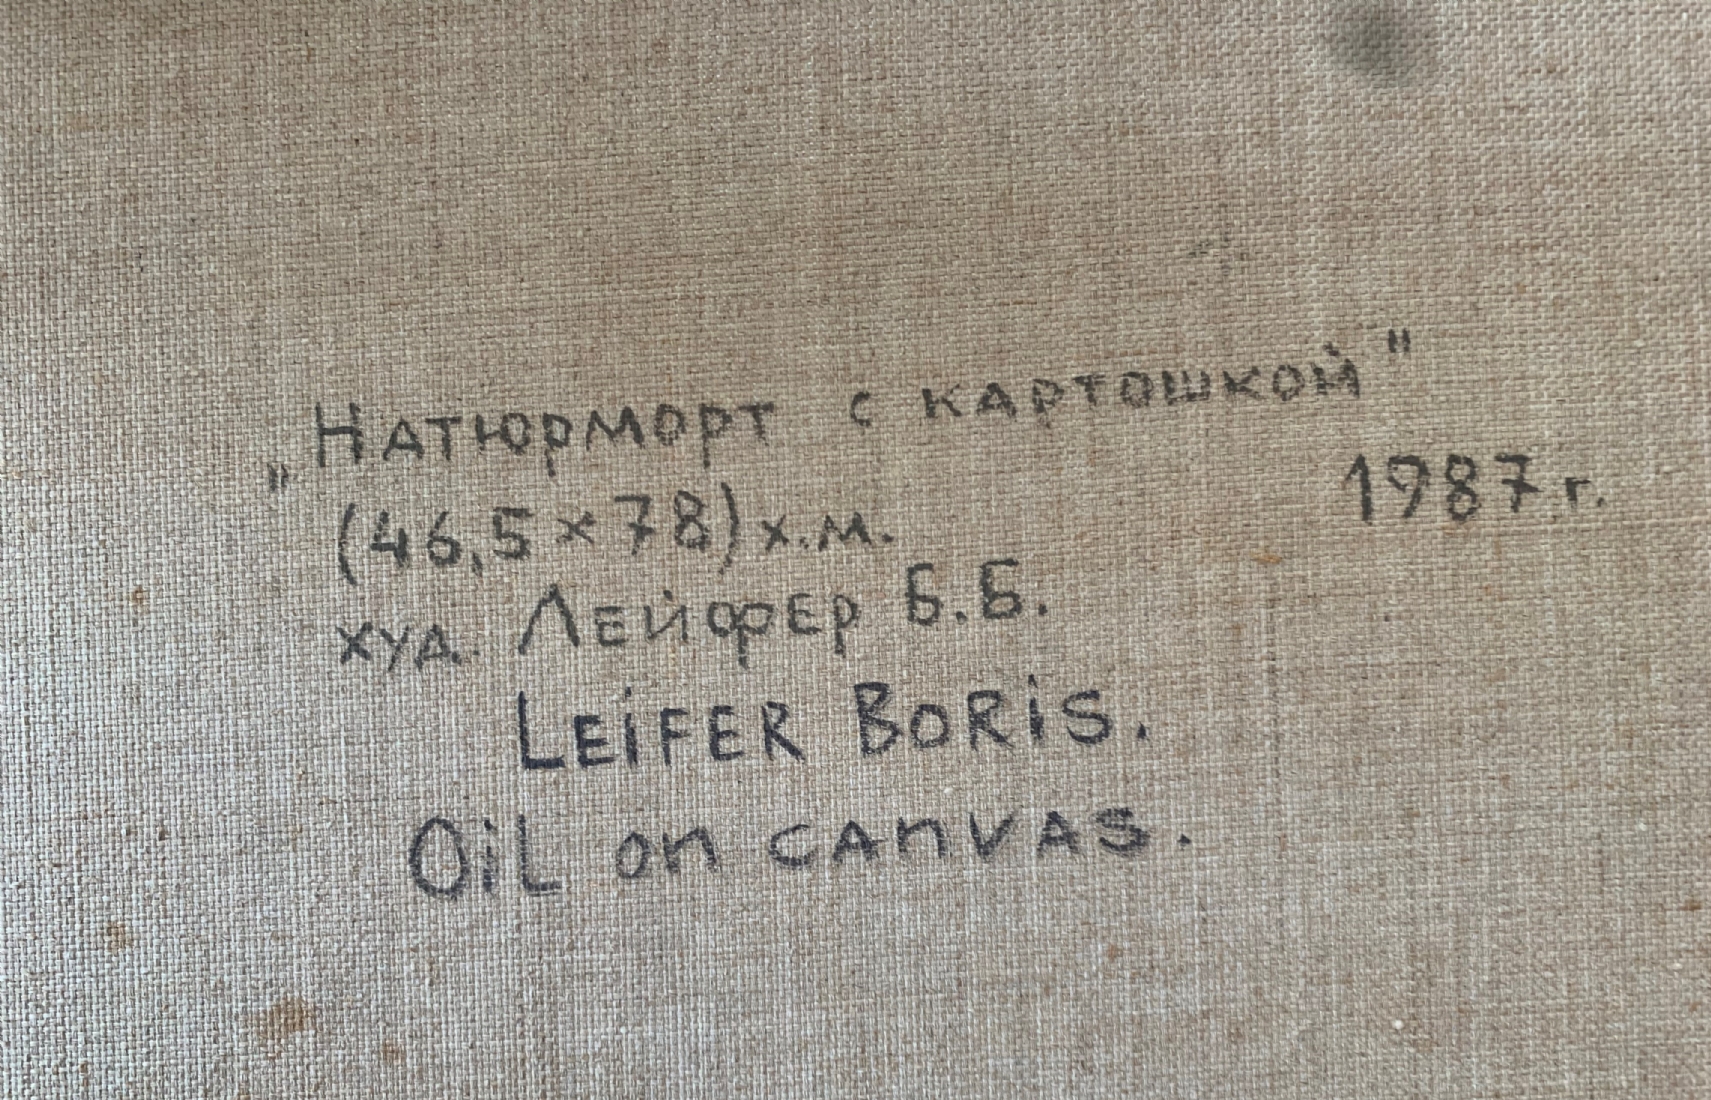 „Натюрморт с картошкой"
1987 г.
(46,5 × 78) х.м.
худ. Лейфер Б.Б.
Leifer Boris.
Oil on canvas.